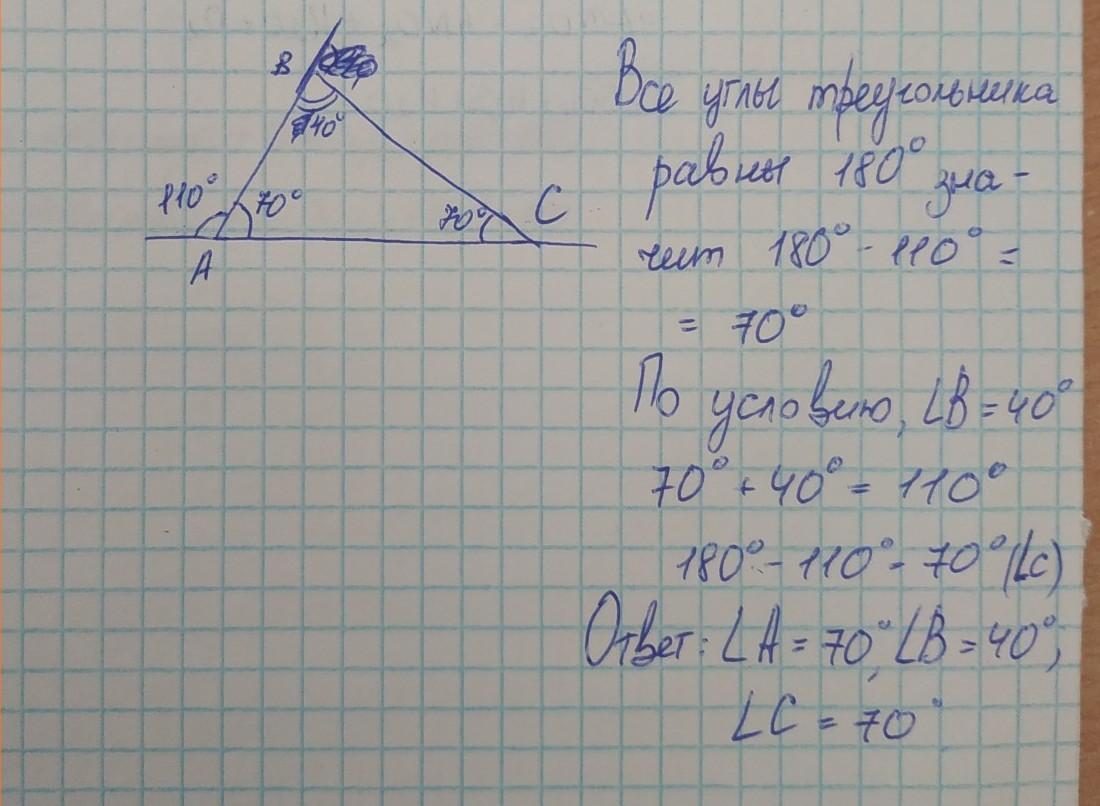 B
40°
110°
70°
70°
C
A
Все углы треугольника
равны 180° зна-
чит 180° - 110° =
= 70°
По условию, ∠B = 40°
70° + 40° = 110°
180° - 110° = 70° (∠C)
Ответ: ∠A = 70°, ∠B = 40°;
∠C = 70°